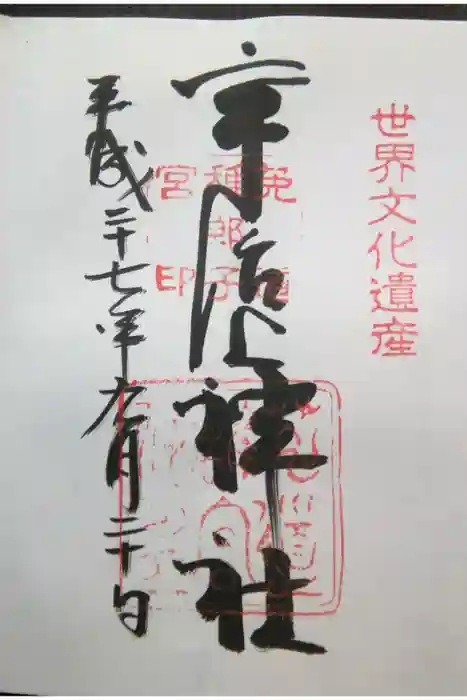 世界文化遺産
宇治上神社
菟道
稚郎子
宮印
平成二十七年九月二十日